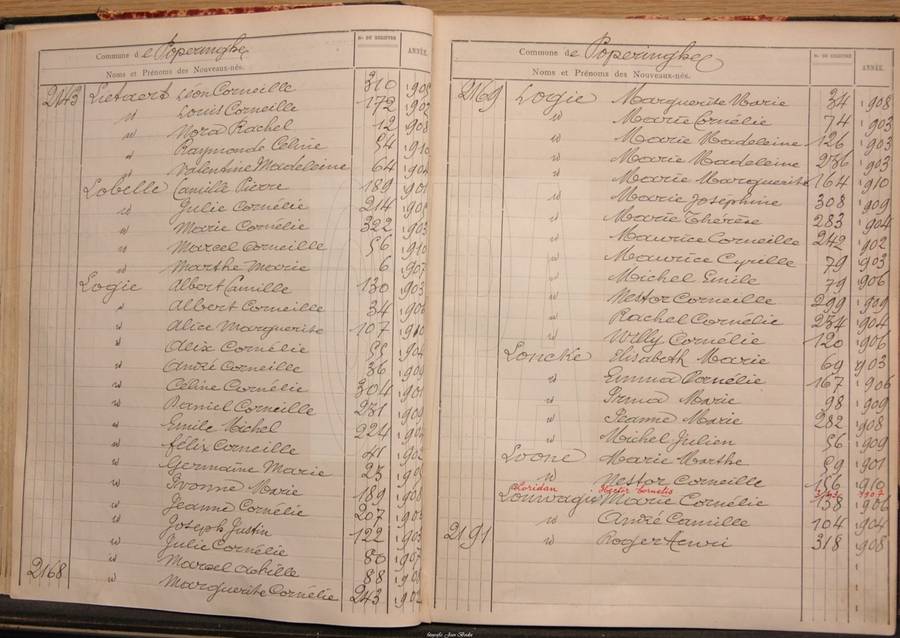 Commune de Poperinghe
Nos DU REGISTRE
ANNÉE.
Noms et Prénoms des Nouveaux-nés.
2143 Lietaert Léon Corneille 310
" Louis Corneille 172 1907
" Nora Rachel 12 1908
" Raymonde Celine 54 1910
" Valentine Madeleine 64 1904
Lobelle Camille Pierre 189 1901
" Julie Cornélie 214
" Marie Cornélie 322 1903
" Marcel Corneille 56 1910
" Marthe Marie 6 1907
Logie Albert Camille 130 1903
" Albert Corneille 34
" Alice Marguerite 107 1910
" Alix Cornélie 55 1904
" André Corneille 36
" Celine Cornélie 304 1901
" Daniel Corneille 231
" Emile Michel 224
" Félix Corneille 41
" Germaine Marie 23
" Yvonne Marie 189 1908
" Jeanne Cornélie 207
" Joseph Justin 122
" Julie Cornélie
" Marcel Achille 80 1907
2168 " Marguerite Cornélie 88 243
Commune de Poperinghe
Nos DU REGISTRE
ANNÉE.
Noms et Prénoms des Nouveaux-nés.
2169 Logie Marguerite Marie 34 1908
" Marie Cornélie 74 1903
" Marie Madeleine 126 1903
" Marie Madeleine 236 1903
" Marie Marguerite 164 1910
" Marie Josephine 308 1909
" Marie Thérèse 283 1904
" Maurice Corneille 242 1902
" Maurice Cyrille 79 1903
" Michel Emile 79 1906
" Nestor Corneille 299 1909
" Rachel Cornélie 234 1904
" Willy Cornélie 120 1906
Loncke Elisabeth Marie 69 1903
" Emma Cornélie 167 1906
" Irma Marie 98 1909
" Jeanne Marie 282 1908
" Michel Julien 56 1909
Loone Marie Marthe 59 1901
" Nestor Corneille 156 1910
Loridan Hector Cornelis 1907
Louwagie Marie Cornélie 138 1906
" André Camille 104 1904
2191 " Roger Henri 318 1908